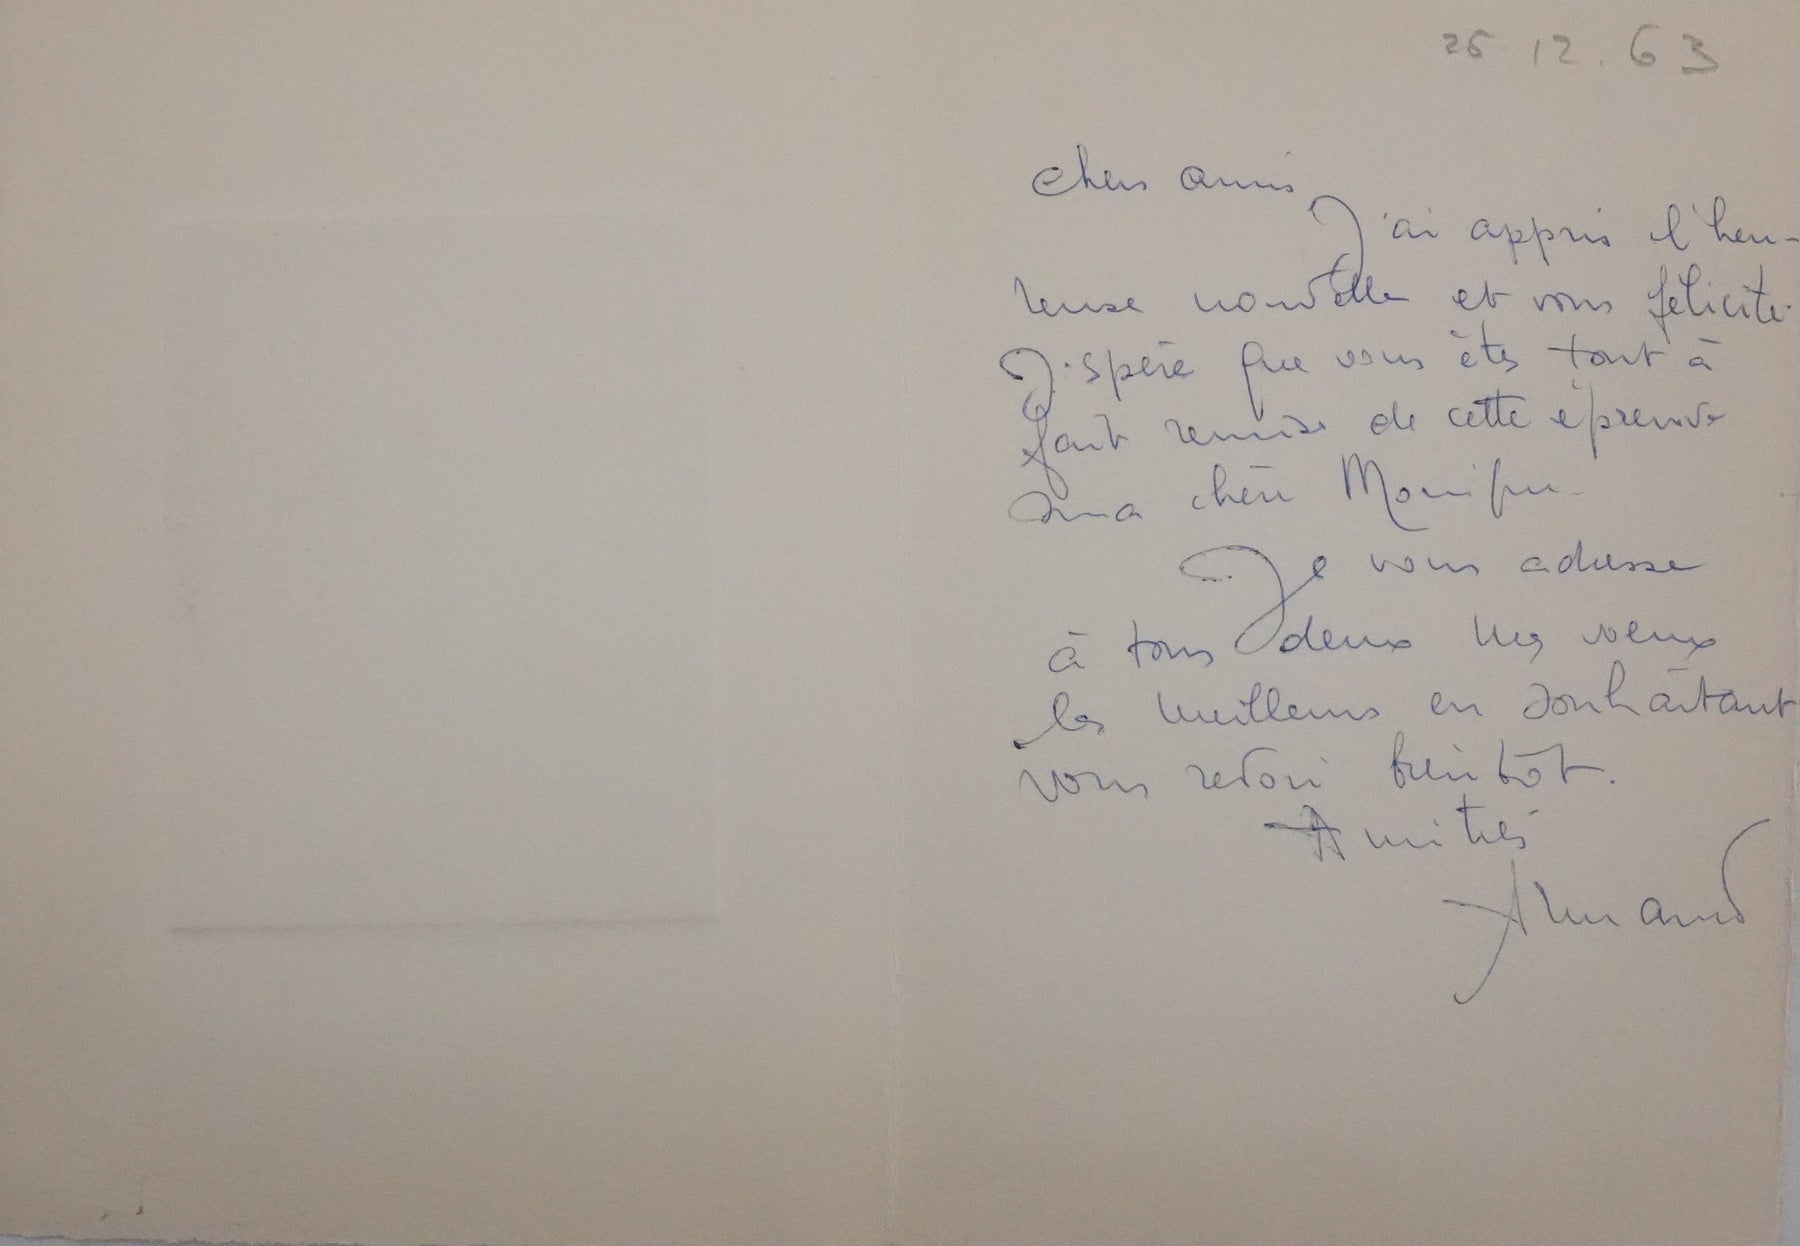 25.12.63
Chers amis
J'ai appris l'heu-
reuse nouvelle et vous félicite.
J'espère que vous êtes tout à
fait remise de cette épreuve
ma chère Monique.
Je vous adresse
à tous deux mes vœux
les meilleurs en souhaitant
vous revoir bientôt.
Amitiés
Armand